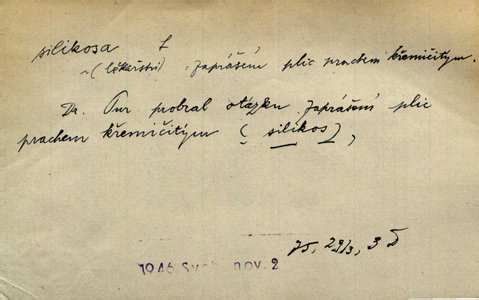 silikosa f
~ (lékařství) : zaprášení plic prachem křemičitým.
Dr. Pur probral otázku zaprášení plic
prachem křemičitým ( silikos ),
75, 29/3, 3 Š
1946 Svob. nov. 2